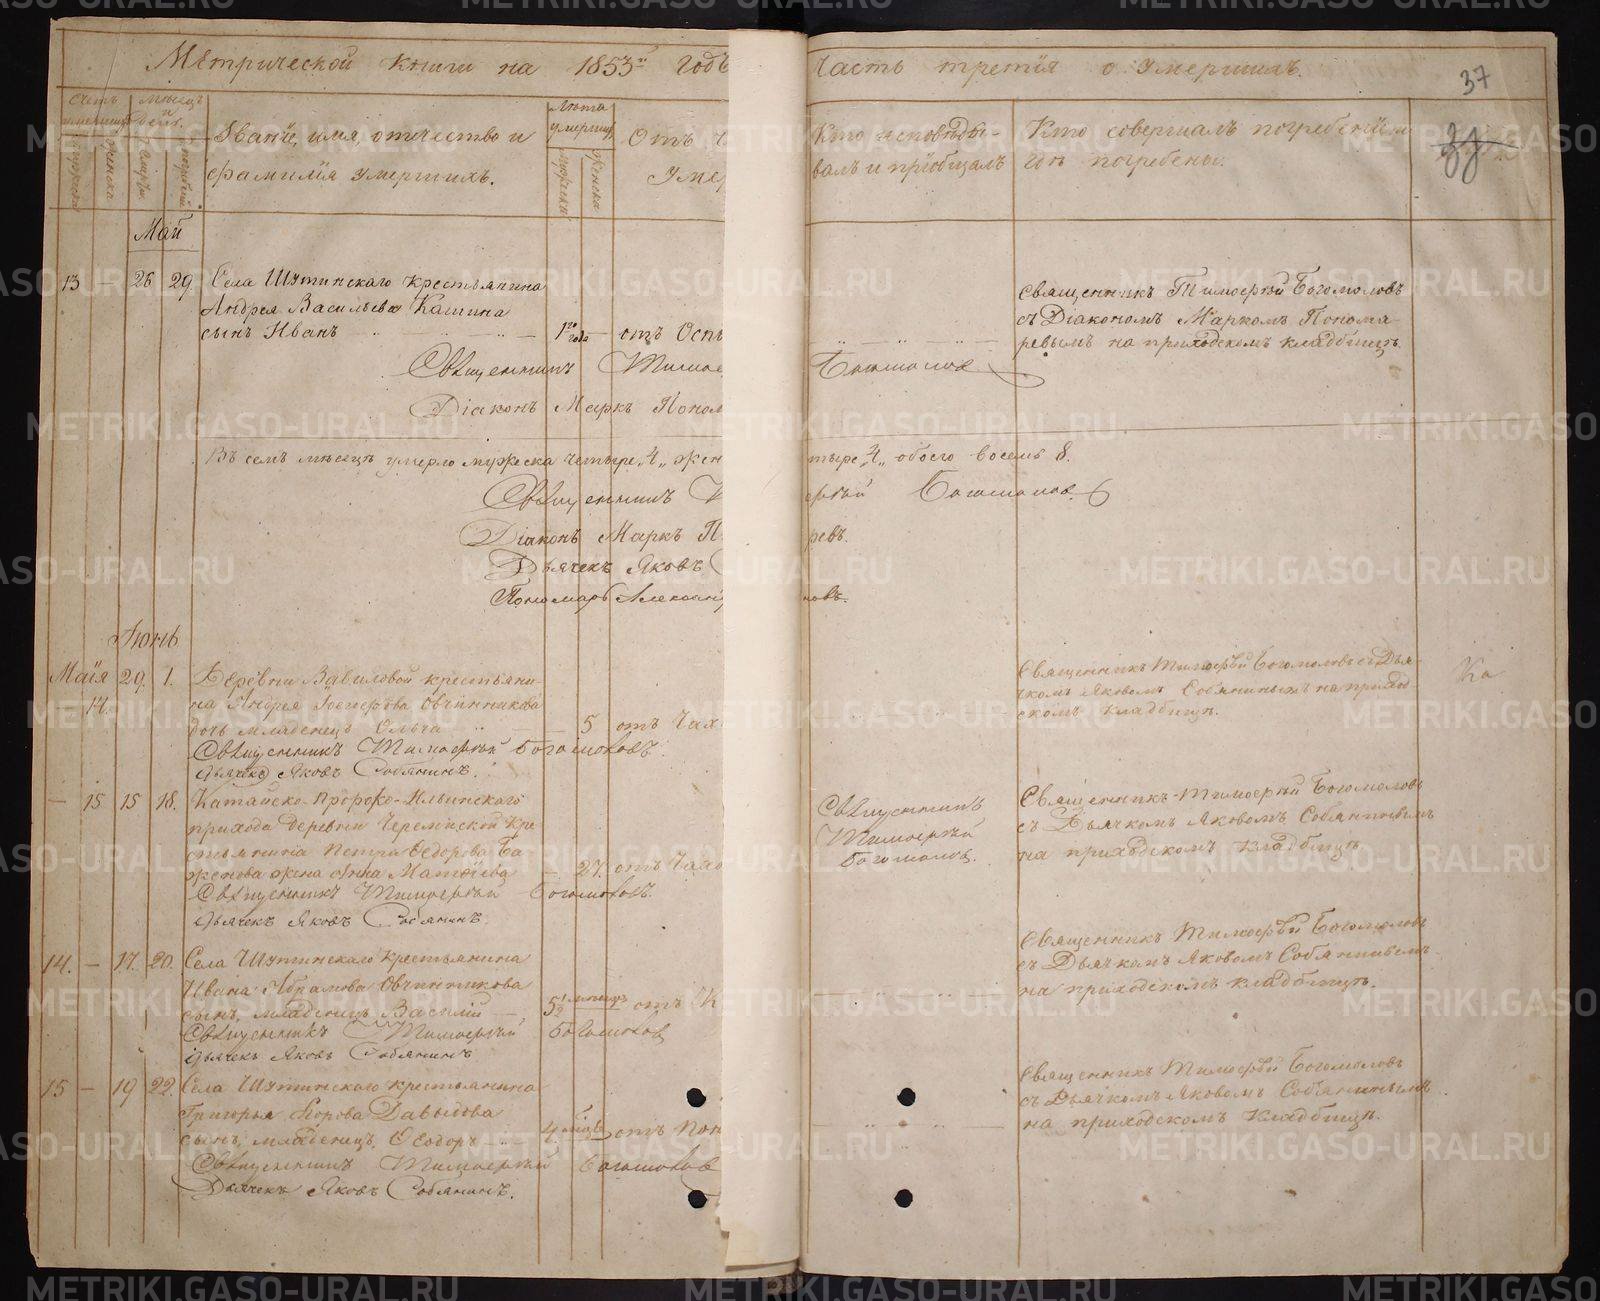 Метрической книги на 1853й годъ
Часть третія о умершихъ.
37
Счетъ умершихъ
Мѣсяцъ и день
Званіе, имя, отчество и
фамилія умершихъ.
Лѣта умершихъ
мужеска
женска
Отъ ч
умер
Кто исповѣды-
валъ и пріобщалъ
Кто совершалъ погребеніе и
гдѣ погребены.
Май
13 — 26 29 Села Шутинскаго крестьянина
Андрея Васильева Кашина
сынъ Иванъ — 1го года — отъ Осп
Священникъ Тимофей Богомоловъ
съ Діакономъ Маркомъ Понома-
ревымъ на приходскомъ кладбищѣ.
Священникъ Тимоѳ
Богомолов
Діаконъ Маркъ Поном
Въ семъ мѣсяцѣ умерло мужеска четыре „4„ жен
тыре „4„ обоего восемь 8.
Священникъ
Богомолов.
Діаконъ Маркъ П
ревъ.
Дьячекъ Яковъ
Пономарь Александ
новъ.
Іюнь
Маія 29. 1. Деревни Вавиловой крестьяни-
14.
на Андрея Овчинникова
дочь младенецъ — 5 отъ
Священникъ Тимофей Богомоловъ съ Дья-
чкомъ Яковомъ Собянинымъ на приход-
скомъ кладбищѣ.
Ка
Священникъ Тимофей Богомоловъ.
Дьячекъ Яковъ Собянинъ.
— 15 15 18. Катайско-Пророко-Ильинскаго
прихода деревни Черемиской кре-
стьянина Петра Федорова Ба
женова жена Анна Матѳіева — 27. отъ Чахо
Священникъ
Тимофей
Богомолов.
Священникъ Тимофей Богомоловъ
съ Дьячкомъ Яковомъ Собянинымъ
на приходскомъ кладбищѣ.
Священникъ Тимофей Богомоловъ.
Дьячекъ Яковъ Собянинъ.
14. — 17. 20. Села Шутинскаго крестьянина
Ивана Абрамова Овчинникова
сынъ, младенецъ Василій — 5½ мѣсяцъ отъ К
Священникъ Тимофей Богомоловъ
съ Дьячкомъ Яковомъ Собянинымъ
на приходскомъ кладбищѣ.
Священникъ Тимофей Богомолов
Дьячекъ Яковъ Собянинъ
15 — 19 22. Села Шутинскаго крестьянина
Григорья Егорова Давыдова
сынъ, младенецъ, Ѳеодоръ 4. отъ Пон
Священникъ Тимофей Богомоловъ
съ Дьячкомъ Яковомъ Собянинымъ
на приходскомъ кладбищѣ.
Священникъ Тимофей Богомолов
Дьячекъ Яковъ Собянинъ.
METRIKI.GASO-URAL.RU